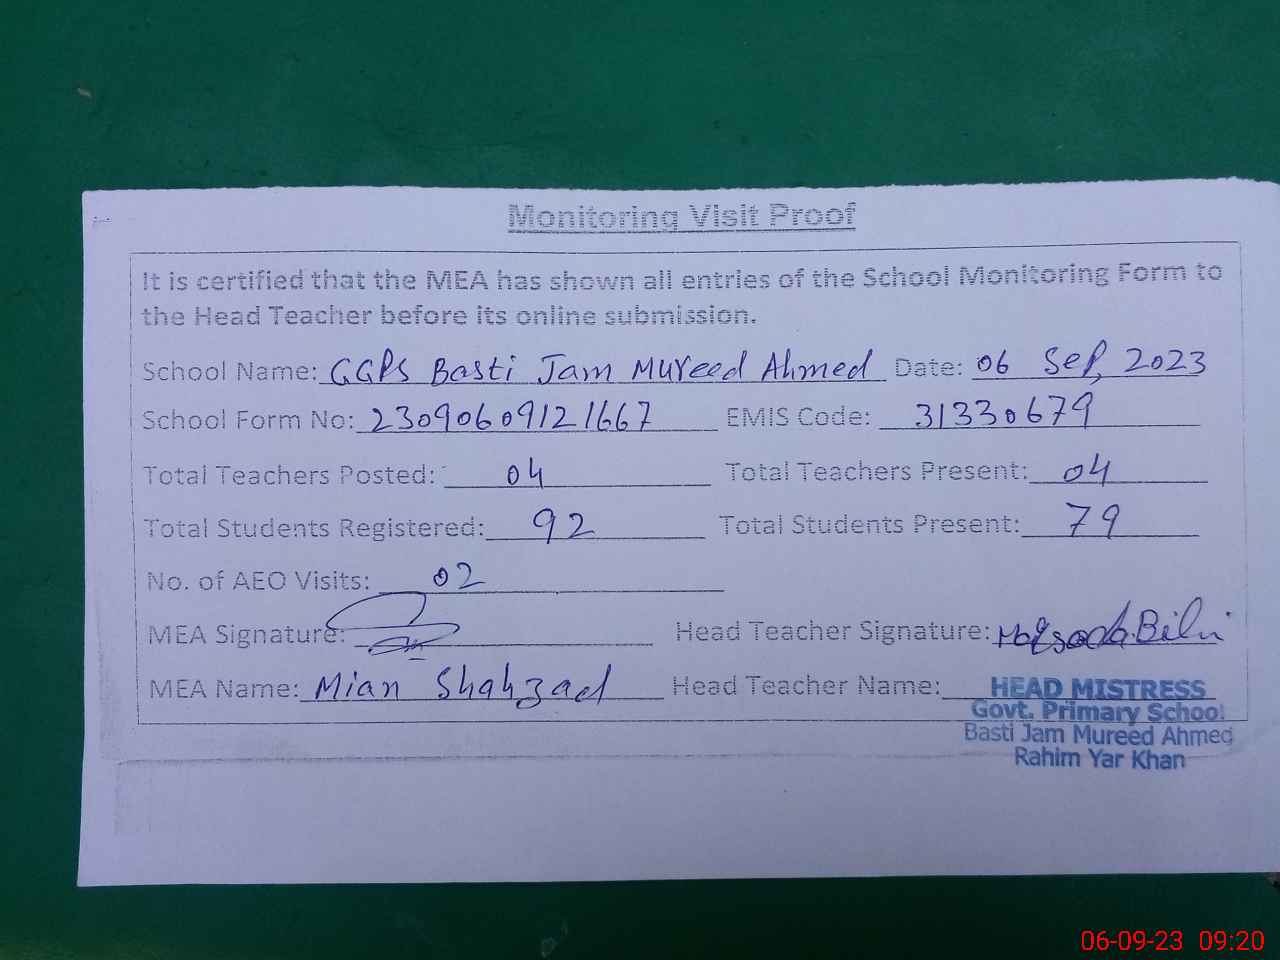 Monitoring Visit Proof
It is certified that the MEA has shown all entries of the School Monitoring Form to
the Head Teacher before its online submission.
School Name: GGPS Basti Jam Mureed Ahmed Date: 06 Sep, 2023
School Form No: 23090609121667 EMIS Code: 31330679
Total Teachers Posted: 04 Total Teachers Present: 04
Total Students Registered: 92 Total Students Present: 79
No. of AEO Visits: 02
MEA Signature: Head Teacher Signature:
MEA Name: Mian Shahzad Head Teacher Name: HEAD MISTRESS
Govt. Primary School
Basti Jam Mureed Ahmed
Rahim Yar Khan
06-09-23 09:20